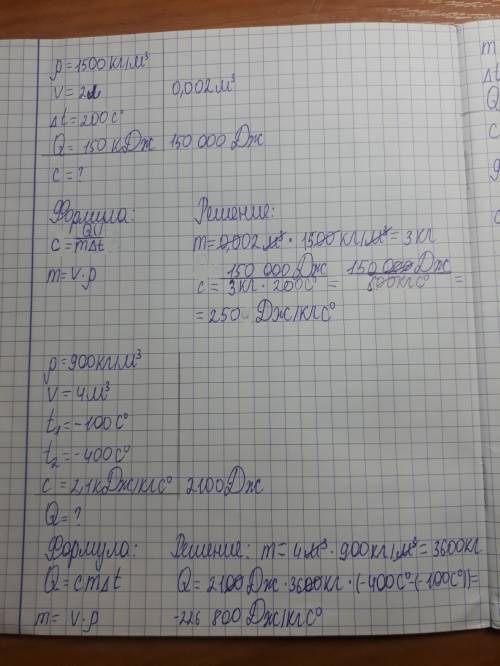 ρ = 1500 кг/м³
V = 2л 0,002 м³
Δt = 200 C°
Q = 150 кДж 150 000 Дж
c = ?
Формула: Решение:
c = Q/mΔt m = 0,002 м³ · 1500 кг/м³ = 3 кг
m = V · ρ c = 150 000 Дж / 3 кг · 200 C° = 150 000 Дж / 600 кг C° =
= 250 Дж/кг C°
ρ = 900 кг/м³
V = 4 м³
t₁ = -100 C°
t₂ = -400 C°
c = 2,1 кДж/кг C° 2100 Дж
Q = ?
Формула: Решение: m = 4 м³ · 900 кг/м³ = 3600 кг
Q = cmΔt Q = 2100 Дж · 3600 кг · (-400 C° - (-100 C°)) =
m = V · ρ -226 800 Дж/кг C°